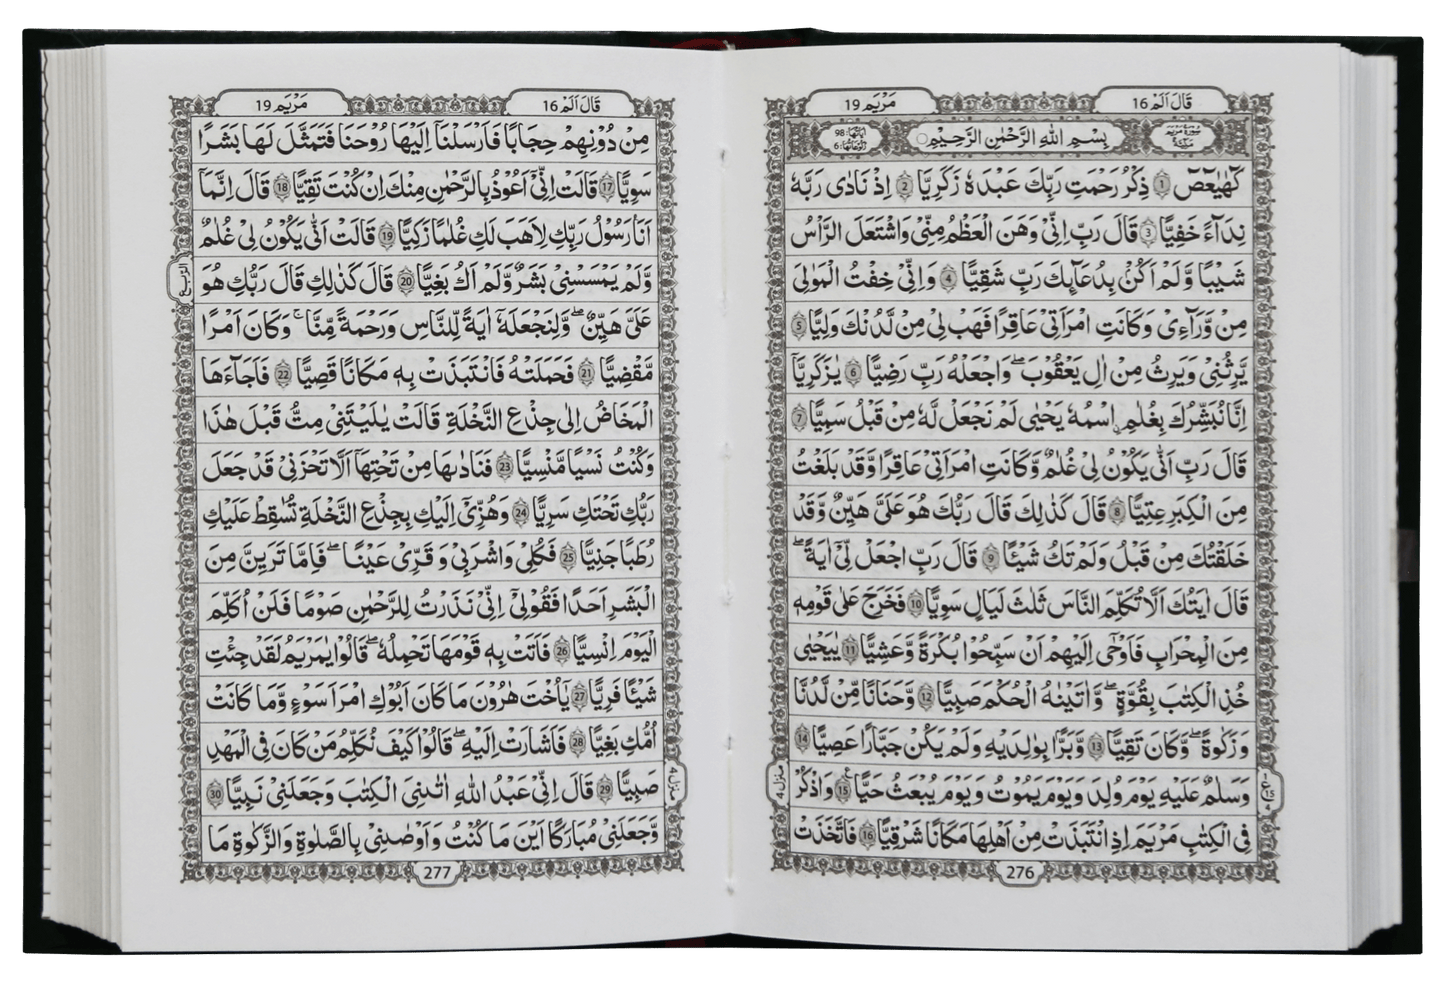 قَالَ اَلَمْ 16
مَرْيَم 19
سُوْرَةُ مَرْيَمَ مَكِّيَّةٌ
بِسْمِ اللّٰهِ الرَّحْمٰنِ الرَّحِيْمِ
اٰيَاتُهَا: 98 رُكُوْعَاتُهَا: 6
كٓهٰيٰعٓصٓ 1 ذِكْرُ رَحْمَتِ رَبِّكَ عَبْدَهٗ زَكَرِيَّا 2 اِذْ نَادٰى رَبَّهٗ
نِدَآءً خَفِيًّا 3 قَالَ رَبِّ اِنِّيْ وَهَنَ الْعَظْمُ مِنِّيْ وَاشْتَعَلَ الرَّاْسُ
شَيْبًا وَّلَمْ اَكُنْۢ بِدُعَآئِكَ رَبِّ شَقِيًّا 4 وَاِنِّيْ خِفْتُ الْمَوَالِيَ
مِنْ وَّرَآءِيْ وَكَانَتِ امْرَاَتِيْ عَاقِرًا فَهَبْ لِيْ مِنْ لَّدُنْكَ وَلِيًّا 5
يَّرِثُنِيْ وَيَرِثُ مِنْ اٰلِ يَعْقُوْبَ ۖ وَاجْعَلْهُ رَبِّ رَضِيًّا 6 يٰزَكَرِيَّآ
اِنَّا نُبَشِّرُكَ بِغُلٰمِ ۨاسْمُهٗ يَحْيٰى لَمْ نَجْعَلْ لَّهٗ مِنْ قَبْلُ سَمِيًّا 7
قَالَ رَبِّ اَنّٰى يَكُوْنُ لِيْ غُلٰمٌ وَّكَانَتِ امْرَاَتِيْ عَاقِرًا وَّقَدْ بَلَغْتُ
مِنَ الْكِبَرِ عِتِيًّا 8 قَالَ كَذٰلِكَ قَالَ رَبُّكَ هُوَ عَلَيَّ هَيِّنٌ وَّقَدْ
خَلَقْتُكَ مِنْ قَبْلُ وَلَمْ تَكُ شَيْـًٔا 9 قَالَ رَبِّ اجْعَلْ لِّيْٓ اٰيَةً ۖ
قَالَ اٰيَتُكَ اَلَّا تُكَلِّمَ النَّاسَ ثَلٰثَ لَيَالٍ سَوِيًّا 10 فَخَرَجَ عَلٰى قَوْمِهٖ
مِنَ الْمِحْرَابِ فَاَوْحٰٓى اِلَيْهِمْ اَنْ سَبِّحُوْا بُكْرَةً وَّعَشِيًّا 11 يٰيَحْيٰى
خُذِ الْكِتٰبَ بِقُوَّةٍ ۖ وَّاٰتَيْنٰهُ الْحُكْمَ صَبِيًّا 12 وَّحَنَانًا مِّنْ لَّدُنَّا
وَزَكٰوةً ۖ وَّكَانَ تَقِيًّا 13 وَّبَرًّا بِوَالِدَيْهِ وَلَمْ يَكُنْ جَبَّارًا عَصِيًّا 14
وَسَلٰمٌ عَلَيْهِ يَوْمَ وُلِدَ وَيَوْمَ يَمُوْتُ وَيَوْمَ يُبْعَثُ حَيًّا 15 وَاذْكُرْ
فِي الْكِتٰبِ مَرْيَمَ اِذِ انْتَبَذَتْ مِنْ اَهْلِهَا مَكَانًا شَرْقِيًّا 16 فَاتَّخَذَتْ
منزل 4
276
قَالَ اَلَمْ 16
مَرْيَم 19
مِنْ دُوْنِهِمْ حِجَابًا فَاَرْسَلْنَآ اِلَيْهَا رُوْحَنَا فَتَمَثَّلَ لَهَا بَشَرًا
سَوِيًّا 17 قَالَتْ اِنِّيْٓ اَعُوْذُ بِالرَّحْمٰنِ مِنْكَ اِنْ كُنْتَ تَقِيًّا 18 قَالَ اِنَّمَآ
اَنَا رَسُوْلُ رَبِّكِ لِاَهَبَ لَكِ غُلٰمًا زَكِيًّا 19 قَالَتْ اَنّٰى يَكُوْنُ لِيْ غُلٰمٌ
وَّلَمْ يَمْسَسْنِيْ بَشَرٌ وَّلَمْ اَكُ بَغِيًّا 20 قَالَ كَذٰلِكِ قَالَ رَبُّكِ هُوَ
الربع
عَلَيَّ هَيِّنٌ ۖ وَّلِنَجْعَلَهٗٓ اٰيَةً لِّلنَّاسِ وَرَحْمَةً مِّنَّا ۚ وَكَانَ اَمْرًا
مَّقْضِيًّا 21 فَحَمَلَتْهُ فَانْتَبَذَتْ بِهٖ مَكَانًا قَصِيًّا 22 فَاَجَآءَهَا
الْمَخَاضُ اِلٰى جِذْعِ النَّخْلَةِ قَالَتْ يٰلَيْتَنِيْ مِتُّ قَبْلَ هٰذَا
وَكُنْتُ نَسْيًا مَّنْسِيًّا 23 فَنَادٰىهَا مِنْ تَحْتِهَآ اَلَّا تَحْزَنِيْ قَدْ جَعَلَ
رَبُّكِ تَحْتَكِ سَرِيًّا 24 وَهُزِّيْٓ اِلَيْكِ بِجِذْعِ النَّخْلَةِ تُسٰقِطْ عَلَيْكِ
رُطَبًا جَنِيًّا 25 فَكُلِيْ وَاشْرَبِيْ وَقَرِّيْ عَيْنًا ۖ فَاِمَّا تَرَيِنَّ مِنَ
الْبَشَرِ اَحَدًا فَقُوْلِيْٓ اِنِّيْ نَذَرْتُ لِلرَّحْمٰنِ صَوْمًا فَلَنْ اُكَلِّمَ
الْيَوْمَ اِنْسِيًّا 26 فَاَتَتْ بِهٖ قَوْمَهَا تَحْمِلُهٗ ۖ قَالُوْا يٰمَرْيَمُ لَقَدْ جِئْتِ
شَيْـًٔا فَرِيًّا 27 يٰٓاُخْتَ هٰرُوْنَ مَا كَانَ اَبُوْكِ امْرَاَ سَوْءٍ وَّمَا كَانَتْ
اُمُّكِ بَغِيًّا 28 فَاَشَارَتْ اِلَيْهِ ۖ قَالُوْا كَيْفَ نُكَلِّمُ مَنْ كَانَ فِي الْمَهْدِ
صَبِيًّا 29 قَالَ اِنِّيْ عَبْدُ اللّٰهِ اٰتٰىنِيَ الْكِتٰبَ وَجَعَلَنِيْ نَبِيًّا 30
وَّجَعَلَنِيْ مُبٰرَكًا اَيْنَ مَا كُنْتُ وَاَوْصٰىنِيْ بِالصَّلٰوةِ وَالزَّكٰوةِ مَا
منزل 4
277